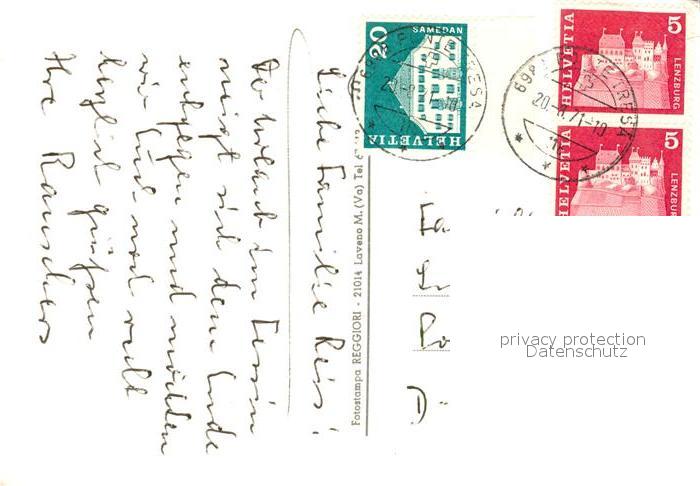 Liebe Familie Reis!
Der Urlaub im Tessin
neigt sich dem Ende
entgegen und möchten
wir Sie und
herzlich grüßen
Ihre Rauschers
Fotostampa REGGIORI - 21014 Laveno M. (Va) Tel
SAMEDAN
20
HELVETIA
5
HELVETIA
LENZBURG
5
HELVETIA
LENZBURG
PONTE TRESA
20-8.71-10
Fa
privacy protection
Datenschutz